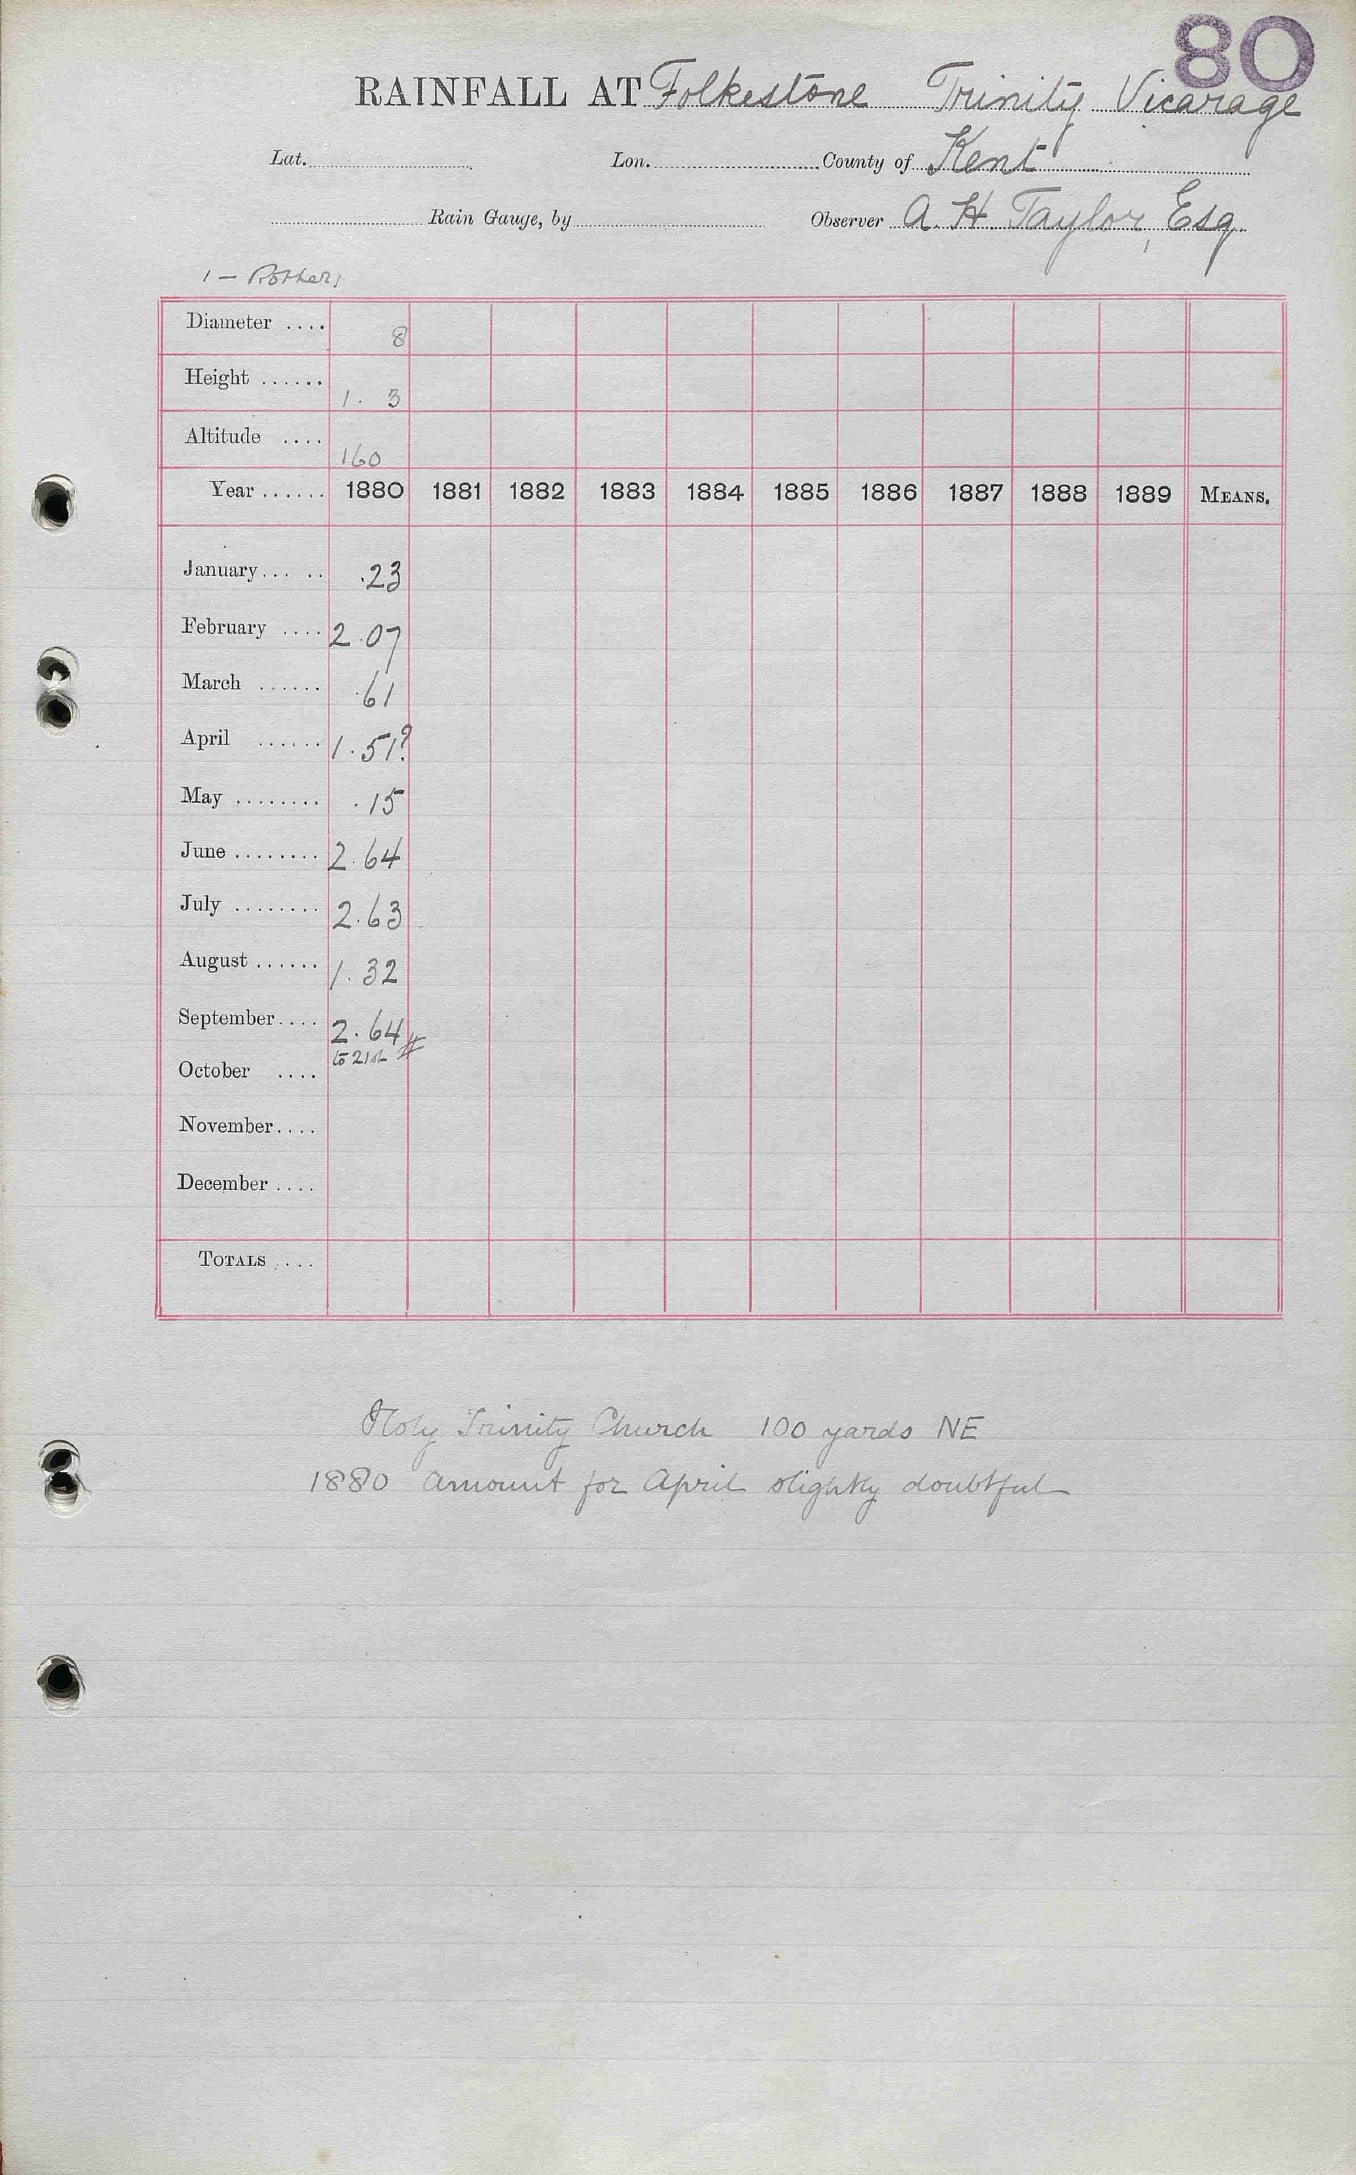 80
RAINFALL AT Folkestone Trinity Vicarage
Lat. Lon. County of Kent
Rain Gauge, by Observer A. H. Taylor, Esq.
1 – Rother
Diameter .... 8
Height ...... 1. 3
Altitude .... 160
Year ...... 1880 1881 1882 1883 1884 1885 1886 1887 1888 1889 MEANS.
January... .. .23
February .... 2.07
March ...... .61
April ...... 1.51?
May ........ .15
June ........ 2.64
July ........ 2.63
August ...... 1.32
September.... 2.64 #
to 21st
October ....
November....
December ....
TOTALS ....
Holy Trinity Church 100 yards NE
1880 amount for April slightly doubtful